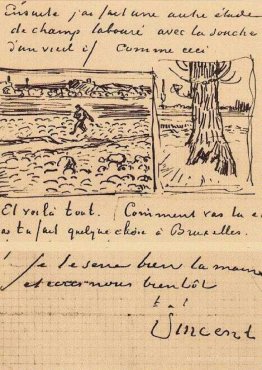 Ensuite j'ai fait une autre étude
de champ labouré avec la souche
d'un vieil if comme ceci
Et voilà tout. Comment vas tu e
as tu fait quelque chose à Bruxelles.
Je te serre bien la main
et
bientôt
t. à t.
Vincent